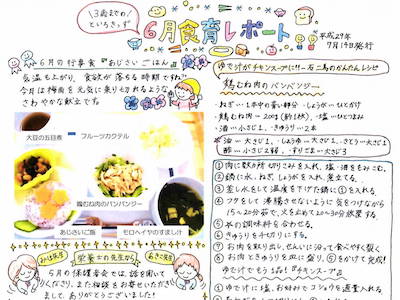 13歳までの
といろきっず
6月食育レポート
平成29年
7月14日発行
6月の行事食『あじさいごはん』
気温も上がり、食欲が落ちる時期ですね。
今月は梅雨を元気に乗り切れるような
さわやかな献立です。
大豆の五目煮
フルーツカクテル
鶏むね肉のバンバンジー
あじさいご飯
モロヘイヤのすまし汁
栄養士の先生から
5月の保護者会では、話を聞いて
くださり、また相談をお寄せいただき
まして、ありがとうございました!
ゆで汁がチキンスープに!!一石二鳥のかんたんレシピ
鶏むね肉のバンバンジー
・ねぎ…1本中の青い部分
・しょうが…ひとかけ
・鶏むね肉…200g(約1枚)
・塩…ひとつまみ
・酒…小さじ1
・きゅうり…2本
①肉に数か所切りこみを入れ、塩・酒をもみこむ。
②鍋に水、ねぎ、しょうがを入れ、煮立てる。
③差し水をして温度を下げた鍋に①を入れる。
④フタをして沸騰させないように気をつけながら
15~20分茹で、火を止めて20~30分放置する。
⑤★の調味料を合わせる。
⑥きゅうりを千切りにする。
⑦お肉を取り出し、せんいに沿って食べやすく裂く
⑧お肉ときゅうりを皿に盛り、⑤をかけて完成!
ゆで汁でもう1品!『チキンスープ』
①ゆで汁に塩、お好みでコショウを適量入れる